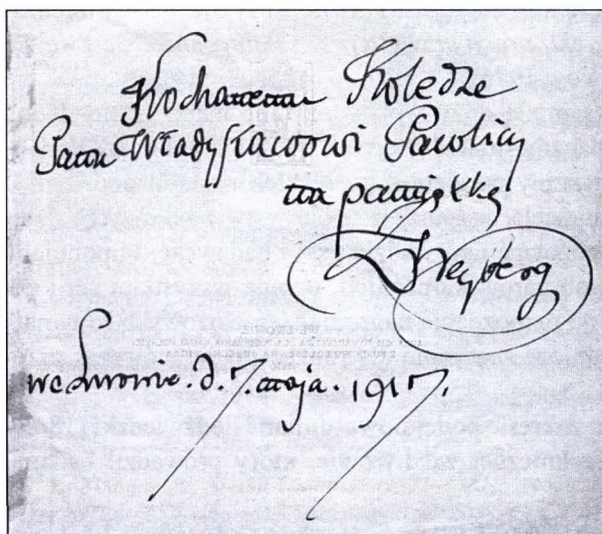 Kochanemu Koledze
Panu Władysławowi Pawlicy
na pamiątkę
Weyberg
we Lwowie. d. 7. maja. 1917.